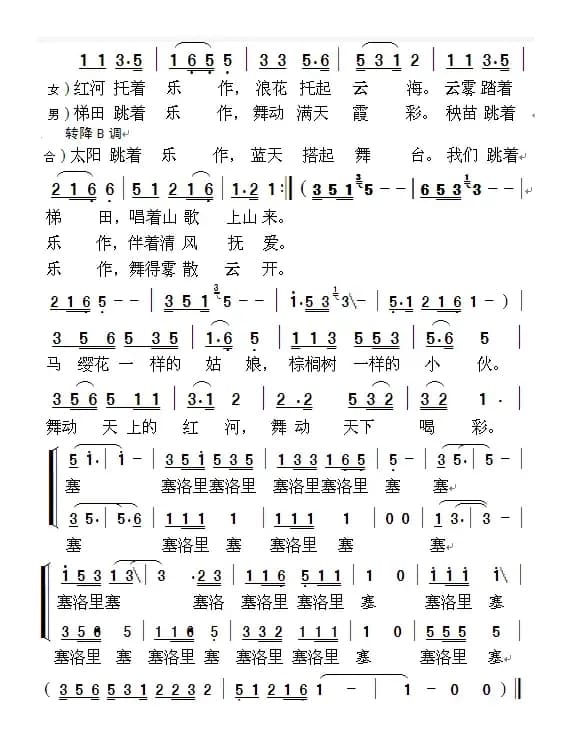 1 1 3·5 | 1 6 5 5 | 3 3 5·6 | 5 3 1 2 | 1 1 3·5
女）红河 托着 乐 作，浪花 托起 云 海。云雾 踏着
男）梯田 跳着 乐 作，舞动 满天 霞 彩。秧苗 跳着
转降 B 调
合）太阳 跳着 乐 作，蓝天 搭起 舞 台。我们 跳着
2 1 6 6 | 5 1 2 1 6 | 1·2 1 :‖ ( 3 5 1 5 - - | 6 5 3 1 - -
梯 田，唱着山 歌 上山 来。
乐 作，伴着清 风 抚 爱。
乐 作，舞得雾 散 云 开。
2 1 6 5 - - | 3 5 1 5 - - | 1·5 3 3 \ | 5·1 2 1 6 1 - )
3 5 6 5 3 5 | 1·6 5 | 1 1 3 5 5 3 | 5·6 5
马 缨花 一 样的 姑 娘，棕榈树 一样的 小 伙。
3 5 6 5 1 1 | 3·1 2 | 5 5 6 5 5 3 | 3 2 1
舞动 天 上的 红 河，舞 动 天下 喝 彩。
5 1· | 1 - | 3 5 1 5 3 5 | 1 3 3 1 6 5 | 5 - | 3 5· | 5 -
塞 塞洛里塞洛里 塞洛里塞洛里 塞 塞
3 5· | 5·6 | 1 1 1 1 | 1 1 1 1 | 0 0 | 1 3· | 3 -
塞 塞洛里 塞 塞洛里 塞 塞
1 5 3 1 3 \ | 3 ·2 3 | 1 1 6 5 1 5 | 1 0 | 1 1 1 1 \
塞洛里塞 塞洛 塞洛里 塞洛里 塞 塞洛里 塞
3 5 6 5 | 5 5 5 5 | 3 3 2 1 1 1 | 1 0 | 5 5 5 5
塞洛里 塞 塞洛里 塞 塞洛里 塞洛里 塞 塞洛里 塞
( 3 5 6 5 5 3 1 2 2 3 2 | 5 1 2 1 6 1 - | 1 - 0 0 )‖